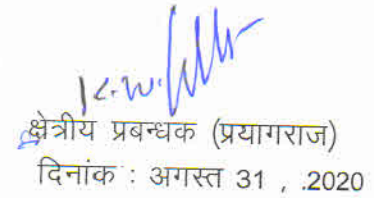 क्षेत्रीय प्रबन्धक (प्रयागराज)
दिनांक : अगस्त 31 , .2020